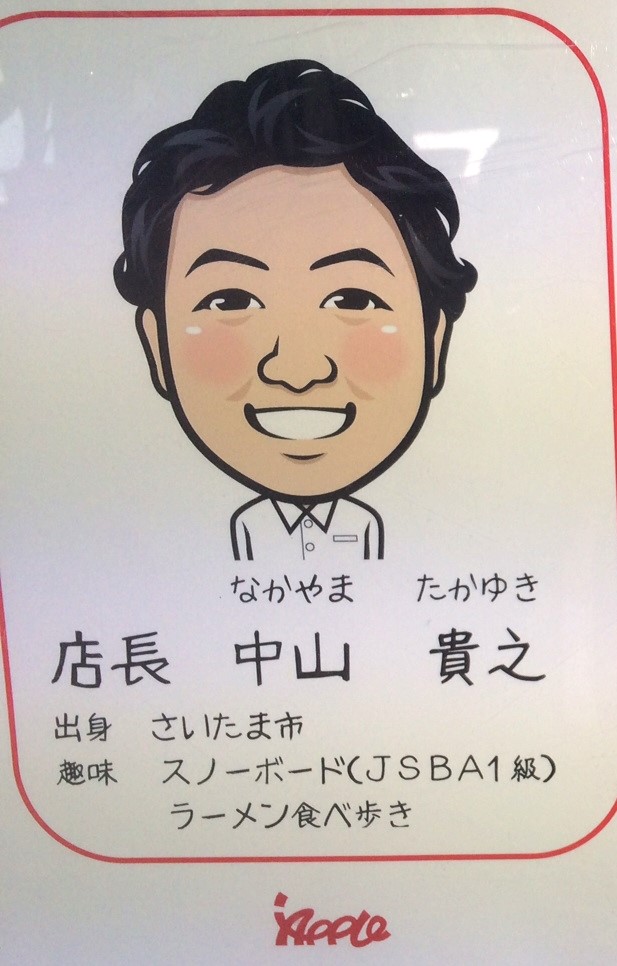 なかやま　たかゆき
店長　中山　貴之
出身　さいたま市
趣味　スノーボード(JSBA1級)
ラーメン食べ歩き
Apple